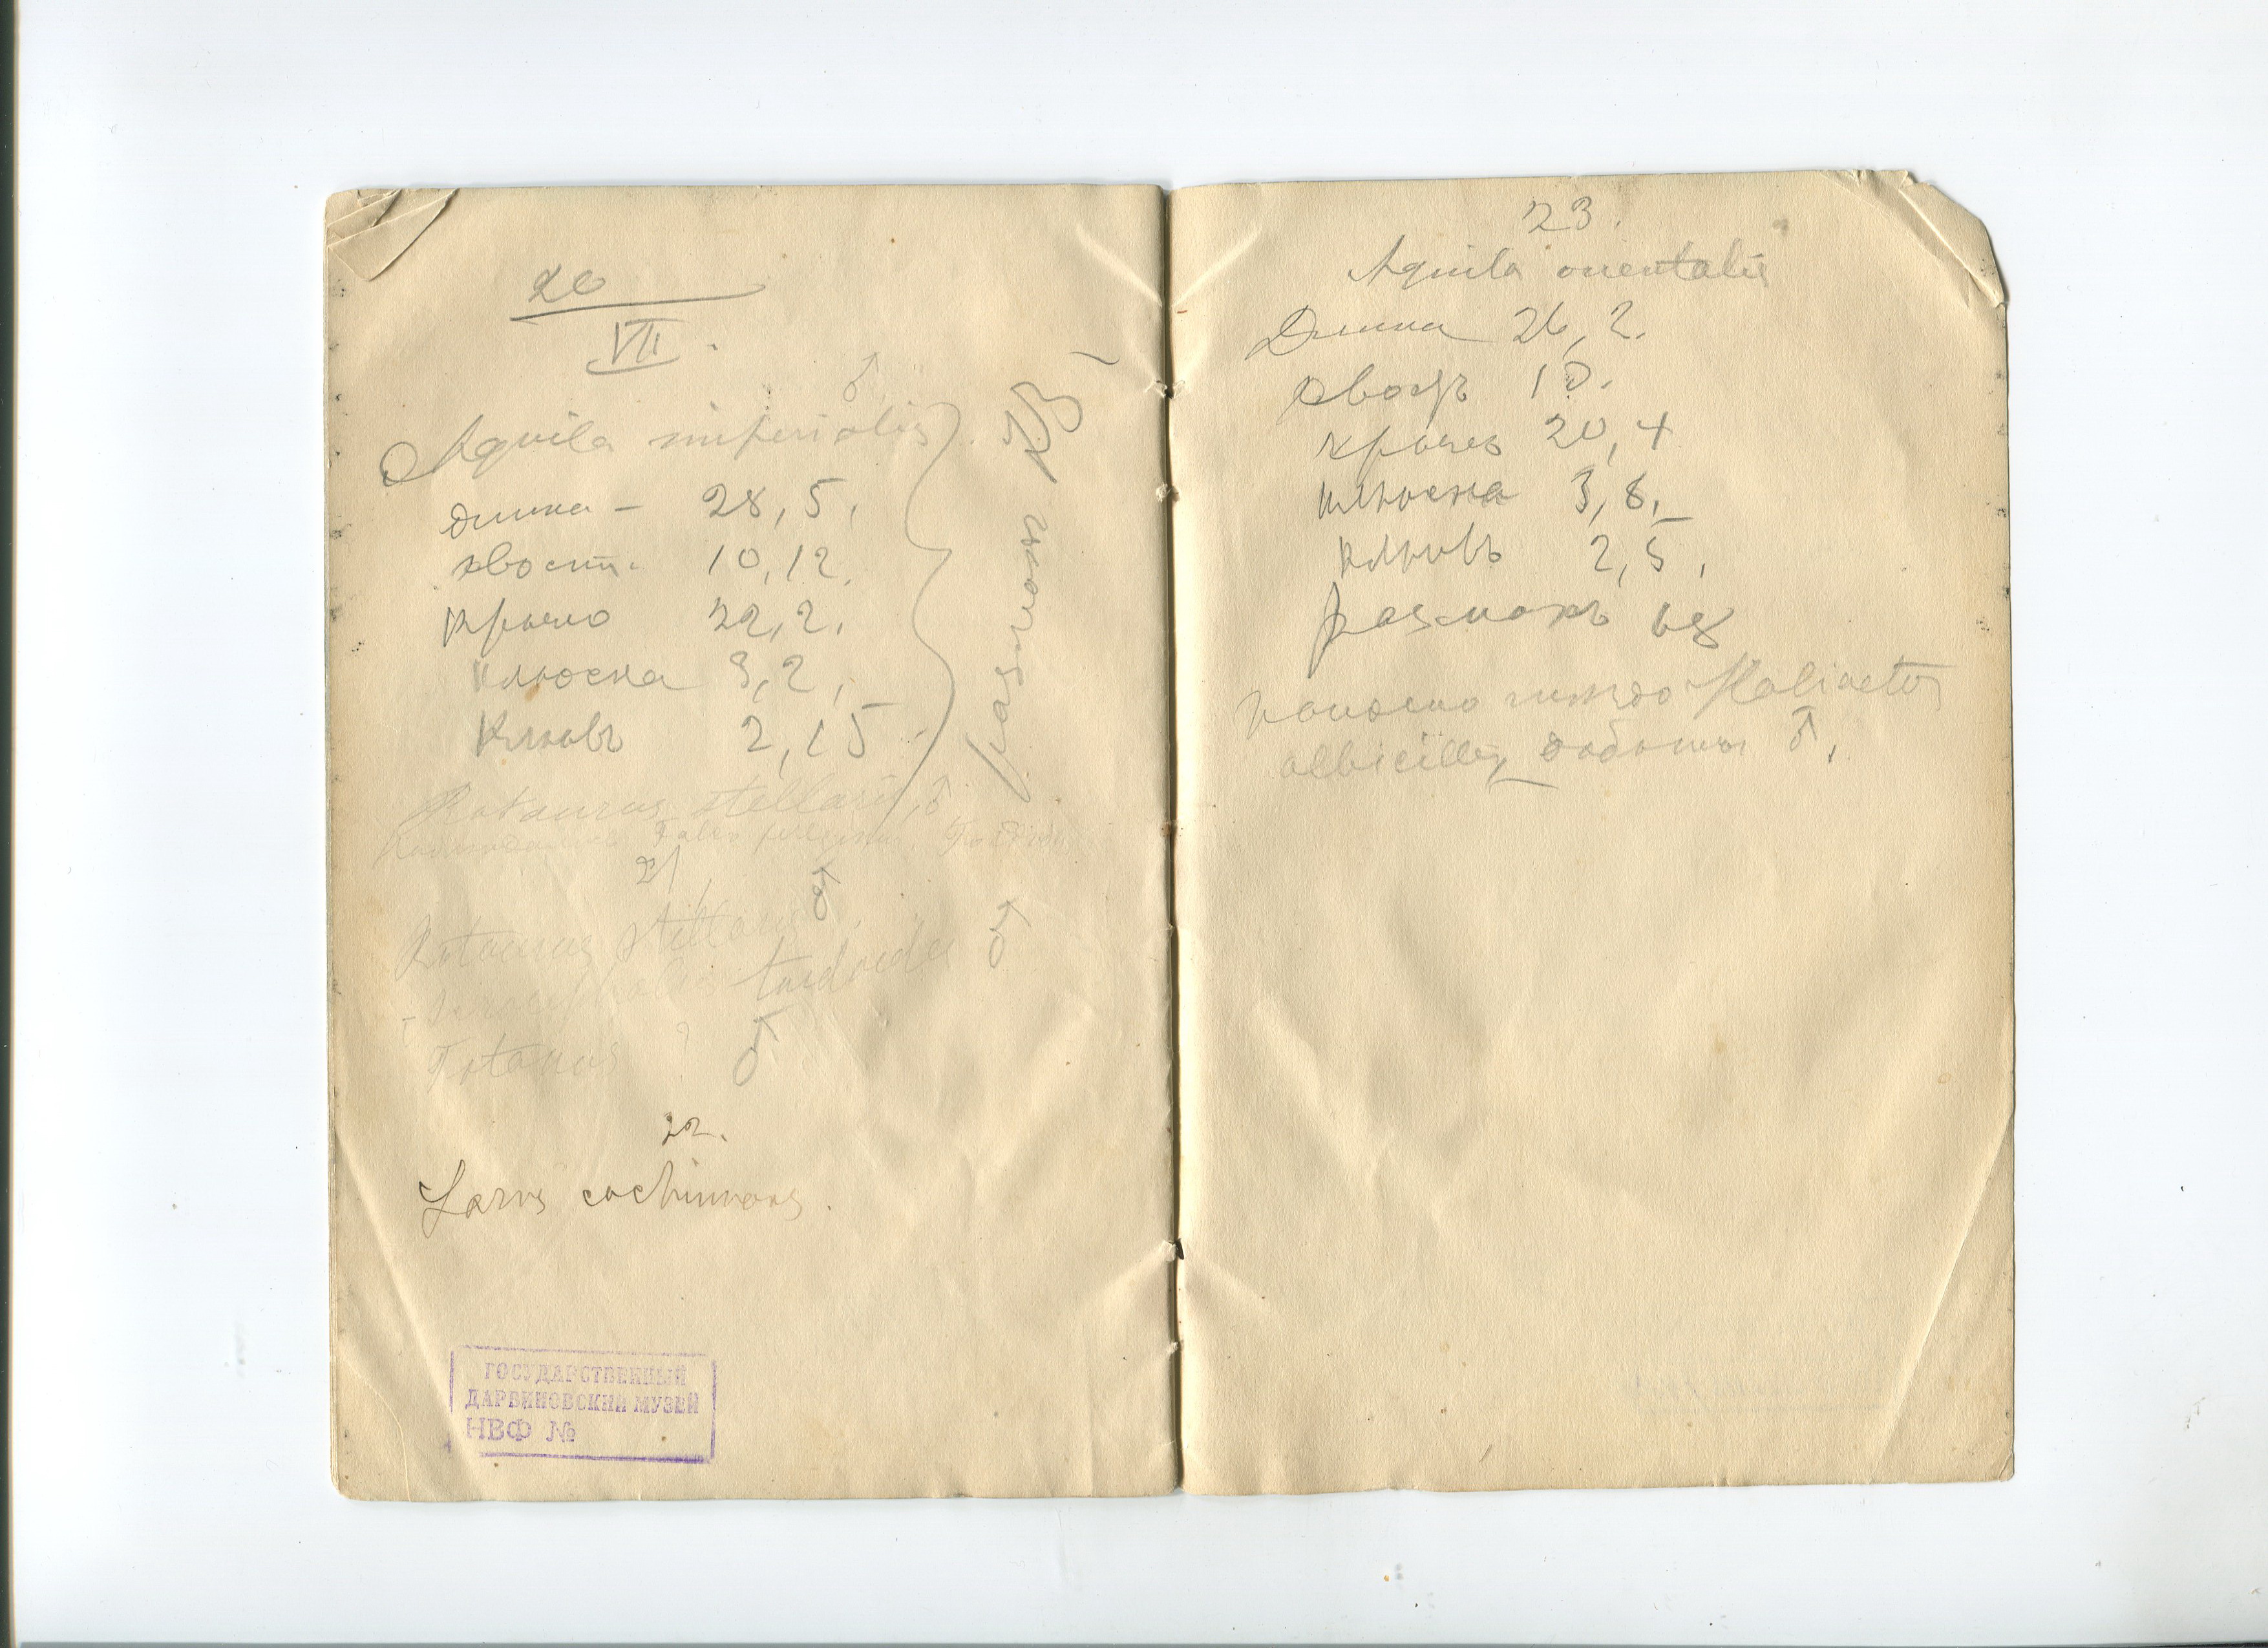 20
VII.
♂
Aquila imperialis.
длина – 28,5,
хвостъ 10,12,
крыло 22,2,
плюсна 3,2,
клювъ 2,15
размахъ 73
Botaurus stellaris, ♂
Falco
21
Botaurus stellaris ♂
turdoides ♂
Totanus ? ♂
22.
Larus cachinnans.
ГОСУДАРСТВЕННЫЙ
ДАРВИНОВСКИЙ МУЗЕЙ
НВФ №
23.
Aquila orientalis
Длина 26,2.
хвостъ 10.
крыло 20,4
плюсна 3,8,
клювъ 2,5,
размахъ 68
гнѣздо Haliaetus
albicilla, добыты ♂,